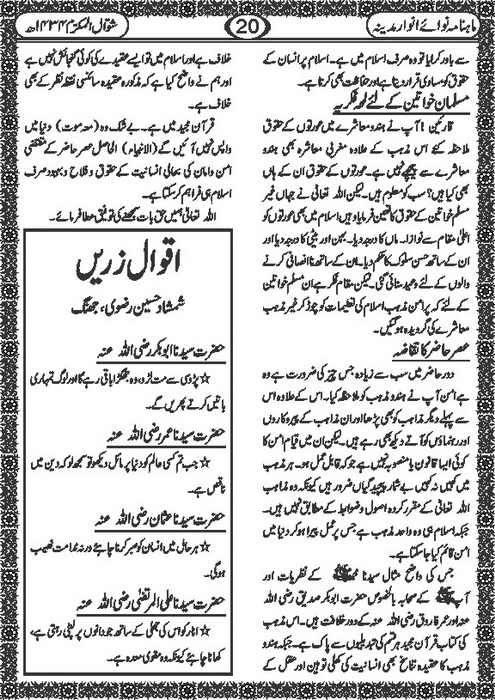 ماہنامہ نوائے انوار مدینہ
20
شوال المکرّم ۱۴۳۴ھ
سے باور کرایا تو وہ صرف اسلام میں ہے۔ اسلام ہر انسان کے
حقوق کو مساوی قرار دیتا ہے اور حفاظت بھی کرتا ہے۔
مسلمان خواتین کے لئے لمحہ فکریہ
قارئین! آپ نے ہندو معاشرے میں عورتوں کے حقوق
ملاحظہ کئے اس مذہب کے علاوہ مغربی معاشرہ بھی ہندو
معاشرے سے پیچھے نہیں ہے۔ عورتوں کے حقوق ان کے ہاں
بھی کیا ہیں؟ سب کو معلوم ہیں۔ لیکن اللہ تعالیٰ نے جہاں غیر
مسلم خواتین کے حقوق کا تعین فرمایا وہیں اسلام میں بھی عورتوں کو
اعلیٰ مقام سے نوازا۔ ماں کا درجہ دیا۔ بہن اور بیٹی کا درجہ دیا اور
ان کے ساتھ حسن سلوک کا حکم دیا۔ ان کے ساتھ نا انصافی کرنے
والوں کے لئے وعید سنائی گئی۔ لیکن مقام فکر ہے ان مسلم خواتین
کے لئے کہ پرامن مذہب اسلام کی تعلیمات کو چھوڑ کر غیر مذہب
معاشرے کی گرویدہ ہو گئیں۔
عصر حاضر کا تقاضہ
دور حاضر میں سب سے زیادہ جس چیز کی ضرورت ہے وہ
ہے امن آپ نے ہندو مذہب کو ملاحظہ کیا۔ اس کے علاوہ اس
سے پہلے دیگر مذاہب کو بھی پڑھا اور ان مذاہب کے پیروکاروں
اور رہنماؤں کو آتے دیکھ بھی رہے ہیں۔ لیکن ان میں قیام امن کا
کوئی ایسا قانون یا منصوبہ نہیں ہے جو کہ قابل عمل ہو۔ ہر مذہب
میں کہیں نہ کہیں بے شمار پیچیدگیاں ضرور ہیں کیونکہ وہ مذاہب
اللہ تعالیٰ کے مقرر کردہ اصول و ضوابط کے مطابق نہیں ہے۔
جبکہ اسلام ہی وہ واحد مذہب ہے جس پر عمل پیرا ہو کر دنیا میں
امن قائم کیا جا سکتا ہے۔
جس کی واضح مثال سیدنا محمد ﷺ کے نظریات اور
آپ ﷺ کے صحابہ بالخصوص حضرت ابوبکر صدیق رضی اللہ
عنہ اور عمر فاروق رضی اللہ عنہ کے دور خلافت ہیں۔ اس مذہب
کی کتاب قرآن مجید ہر قسم کی تبدیلیوں سے پاک ہے۔ جبکہ ہندو
مذہب کا عقیدہ تناسخ بھی انسانیت کی کھلی توہین اور عقل کے
خلاف ہے اور اسلام میں تو ایسے عقیدے کی کوئی گنجائش نہیں ہے
اور ہم نے واضح کیا ہے کہ مذکورہ عقیدہ سائنسی نقطہ نظر کے بھی
خلاف ہے۔
قرآن مجید میں ہے۔ بے شک وہ (بعد موت) دنیا میں
واپس نہیں آئیں گے (الانبیاء) الحاصل عصر حاضر کے مقتضی
امن و امان کی بحالی انسانیت کے حقوق و فلاح و بہبود صرف
اسلام ہی فراہم کر سکتا ہے۔
اللہ تعالیٰ ہمیں حق بات سمجھنے کی توفیق عطا فرمائے۔
اقوال زریں
شمشاد حسین رضوی، جھنگ
حضرت سیدنا ابوبکر رضی اللہ عنہ
☆ پڑوسی سے مت لڑو، وہ جھگڑا باقی رہے گا اور لوگ تمہاری
باتیں کرتے پھریں گے۔
حضرت سیدنا عمر رضی اللہ عنہ
☆ جب تم کسی عالم کو دنیا پر مائل دیکھو تو سمجھ لو کہ دین میں
ناقص ہے۔
حضرت سیدنا عثمان رضی اللہ عنہ
☆ ہر حال میں انسان کو صبر کرنا چاہئے ورنہ ندامت نصیب
ہوگی۔
حضرت سیدنا علی المرتضیٰ رضی اللہ عنہ
☆ انار کو اس کی جھلی کے ساتھ جو دانوں پر لپٹی رہتی ہے،
کھانا چاہئے کیونکہ وہ مقوی معدہ ہے۔